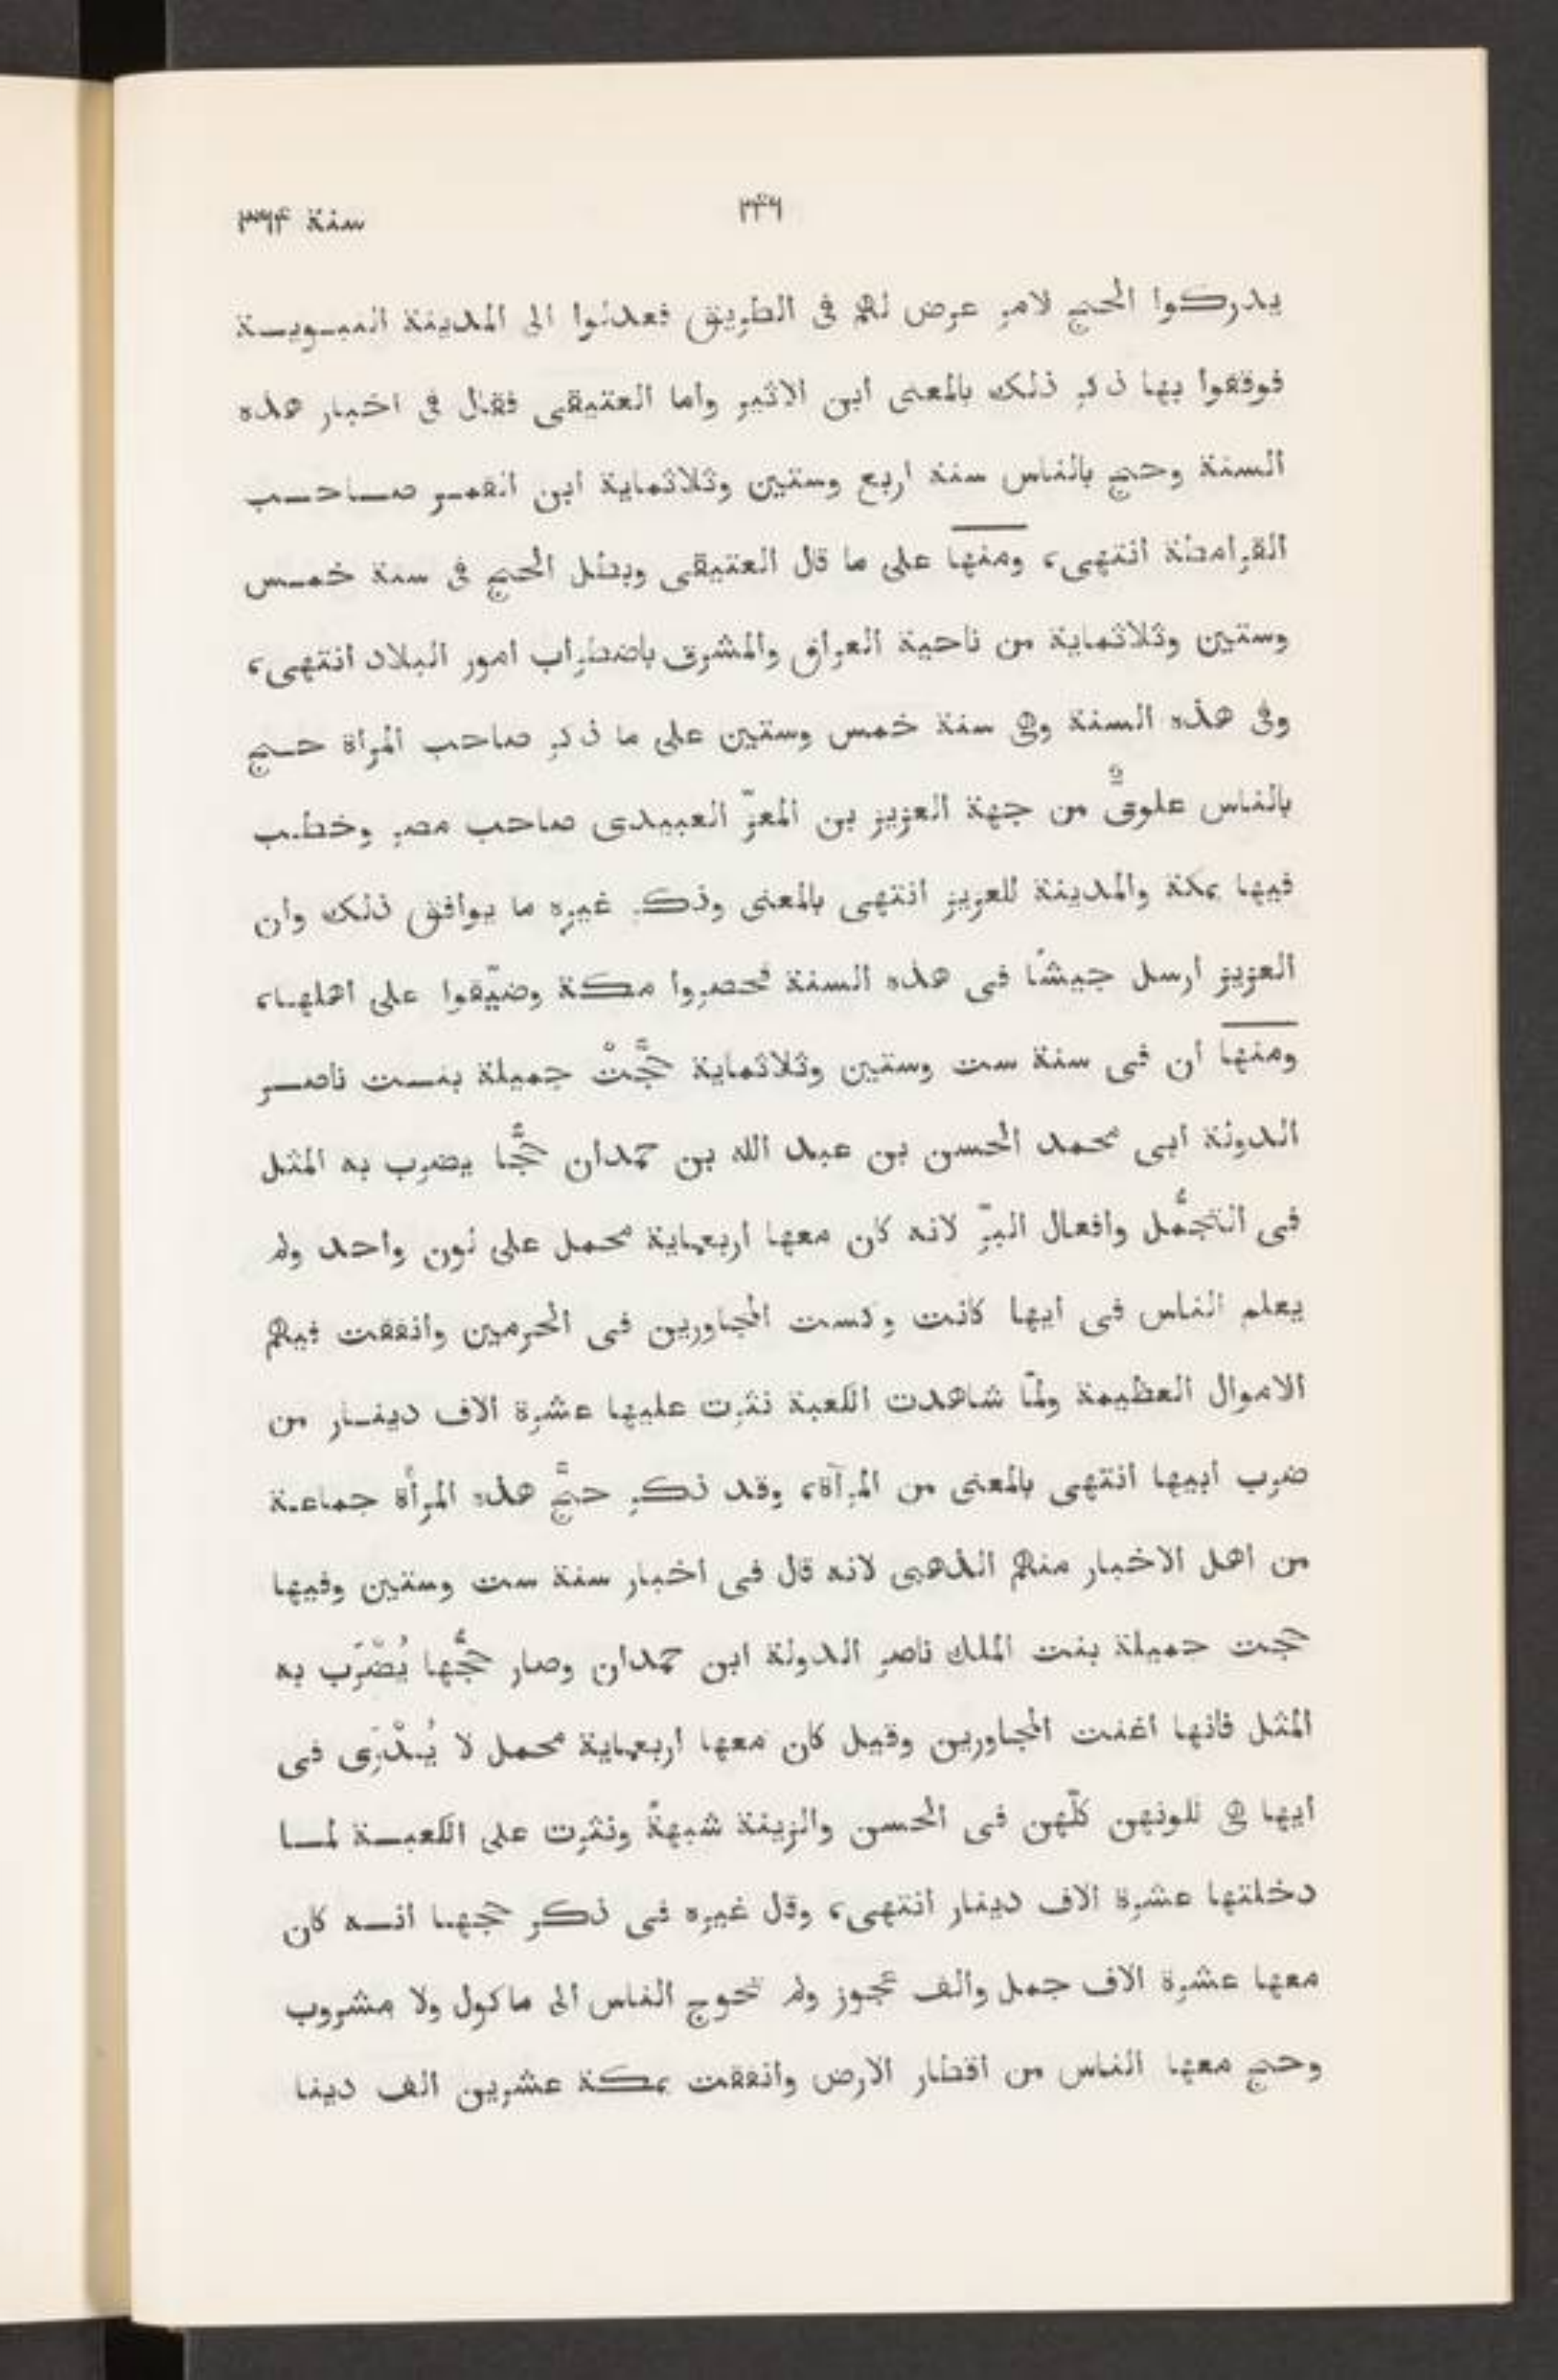 ٢٤٦ سنة ٣٦۴
يدركوا الحج لامر عرض لهم فى الطريق فعدلوا الى المدينة النبـويـة
فوقفوا بها ذكر ذلك بالمعنى ابن الاثير واما العتيقى فقال فى اخبار هذه
السنة وحج بالناس سنة اربع وستين وثلاثماية ابن القمـر صـاحـب
القرامطة انتهى، ومنها على ما قال العتيقى وبطل الحج فى سنة خمـس
وستين وثلاثماية من ناحية العراق والمشرق باضطراب امور البلاد انتهى،
وفى هذه السنة وهى سنة خمس وستين على ما ذكر صاحب المراة حـج
بالناس علوىٌّ من جهة العزيز بن المعزّ العبيدى صاحب مصر وخطـب
فيها بمكة والمدينة للعزيز انتهى بالمعنى وذكـر غيره ما يوافق ذلك وان
العزيز ارسل جيشًا فى هذه السنة فحصروا مكـة وضيّقوا على اهلهـا،
ومنها ان فى سنة ست وستين وثلاثماية حَجَّتْ جميلة بنـت ناصـر
الدولة ابى محمد الحسن بن عبد الله بن حمدان حَجًّا يضرب به المثل
فى التجمُّل وافعال البرّ لانه كان معها اربعماية محمل على لون واحد ولم
يعلم الناس فى ايها كانت وكست المجاورين فى الحرمين وانفقت فيهم
الاموال العظيمة ولمّا شاهدت الكعبة نثرت عليها عشرة الاف دينـار من
ضرب ابيها انتهى بالمعنى من المرآة، وقد ذكـر حجَّ هذه المرأة جماعـة
من اهل الاخبار منهم الذهبى لانه قال فى اخبار سنة ست وستين وفيها
حجت جميلة بنت الملك ناصر الدولة ابن حمدان وصار حَجُّها يُضْرَب به
المثل فانها اغنت المجاورين وقيل كان معها اربعماية محمل لا يُـدْرَى فى
ايها هى للونهن كلّهن فى الحسن والزينة شبهةً ونثرت على الكعبـة لمـا
دخلتها عشرة الاف دينار انتهى، وقال غيره فى ذكـر حجهـا انـه كان
معها عشرة الاف جمل والف عجوز ولم تحوج الناس الى ماكول ولا مشروب
وحج معها الناس من اقطار الارض وانفقت بمكـة عشرين الف دينا